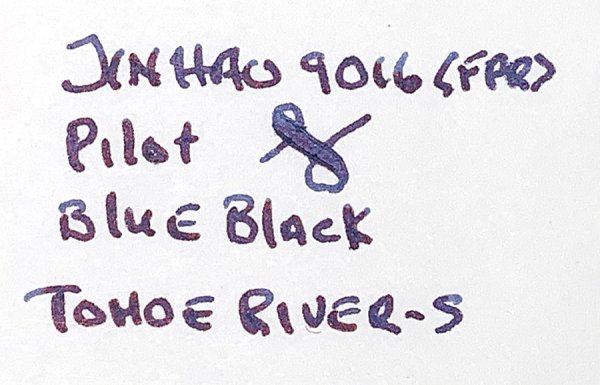 JINHAO 9016 (FPR)
Pilot &
Blue Black
TOMOE RIVER-S